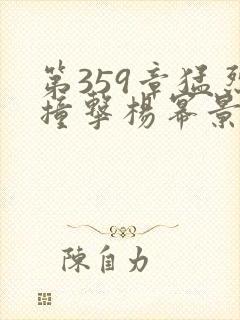 第359章猛烈
撞擊楊冪景
陳自力